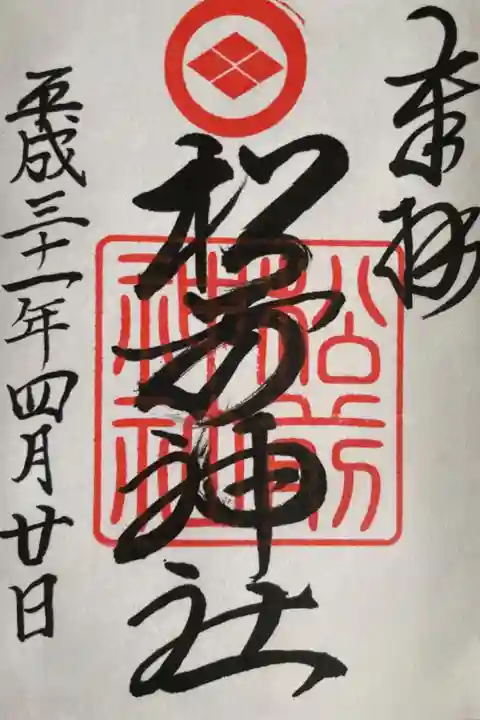 奉拝
松前神社
松前
神社
平成三十一年四月廿日